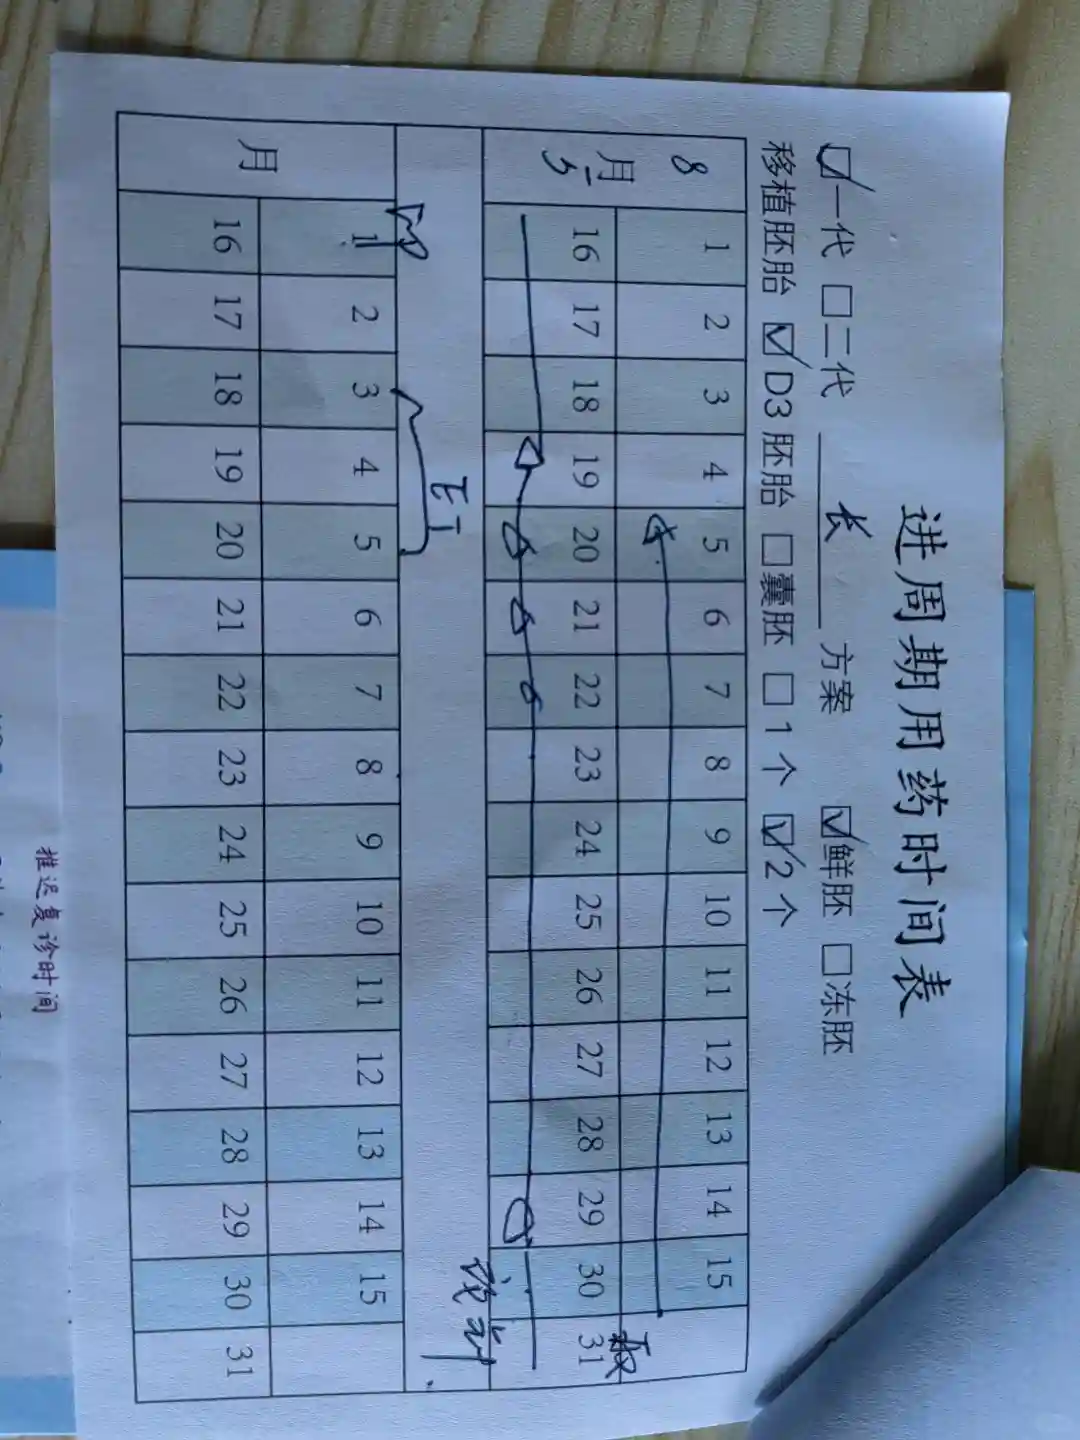 进周期用药时间表
☑一代 □二代 长 方案 ☑鲜胚 □冻胚
移植胚胎 ☑D3胚胎 □囊胚 □1个 ☑2个
8 1 2 3 4 5 6 7 8 9 10 11 12 13 14 15
月 16 17 18 19 20 21 22 23 24 25 26 27 28 29 30 31
取
1 2 3 4 5 6 7 8 9 10 11 12 13 14 15
月 16 17 18 19 20 21 22 23 24 25 26 27 28 29 30 31
推迟复诊时间